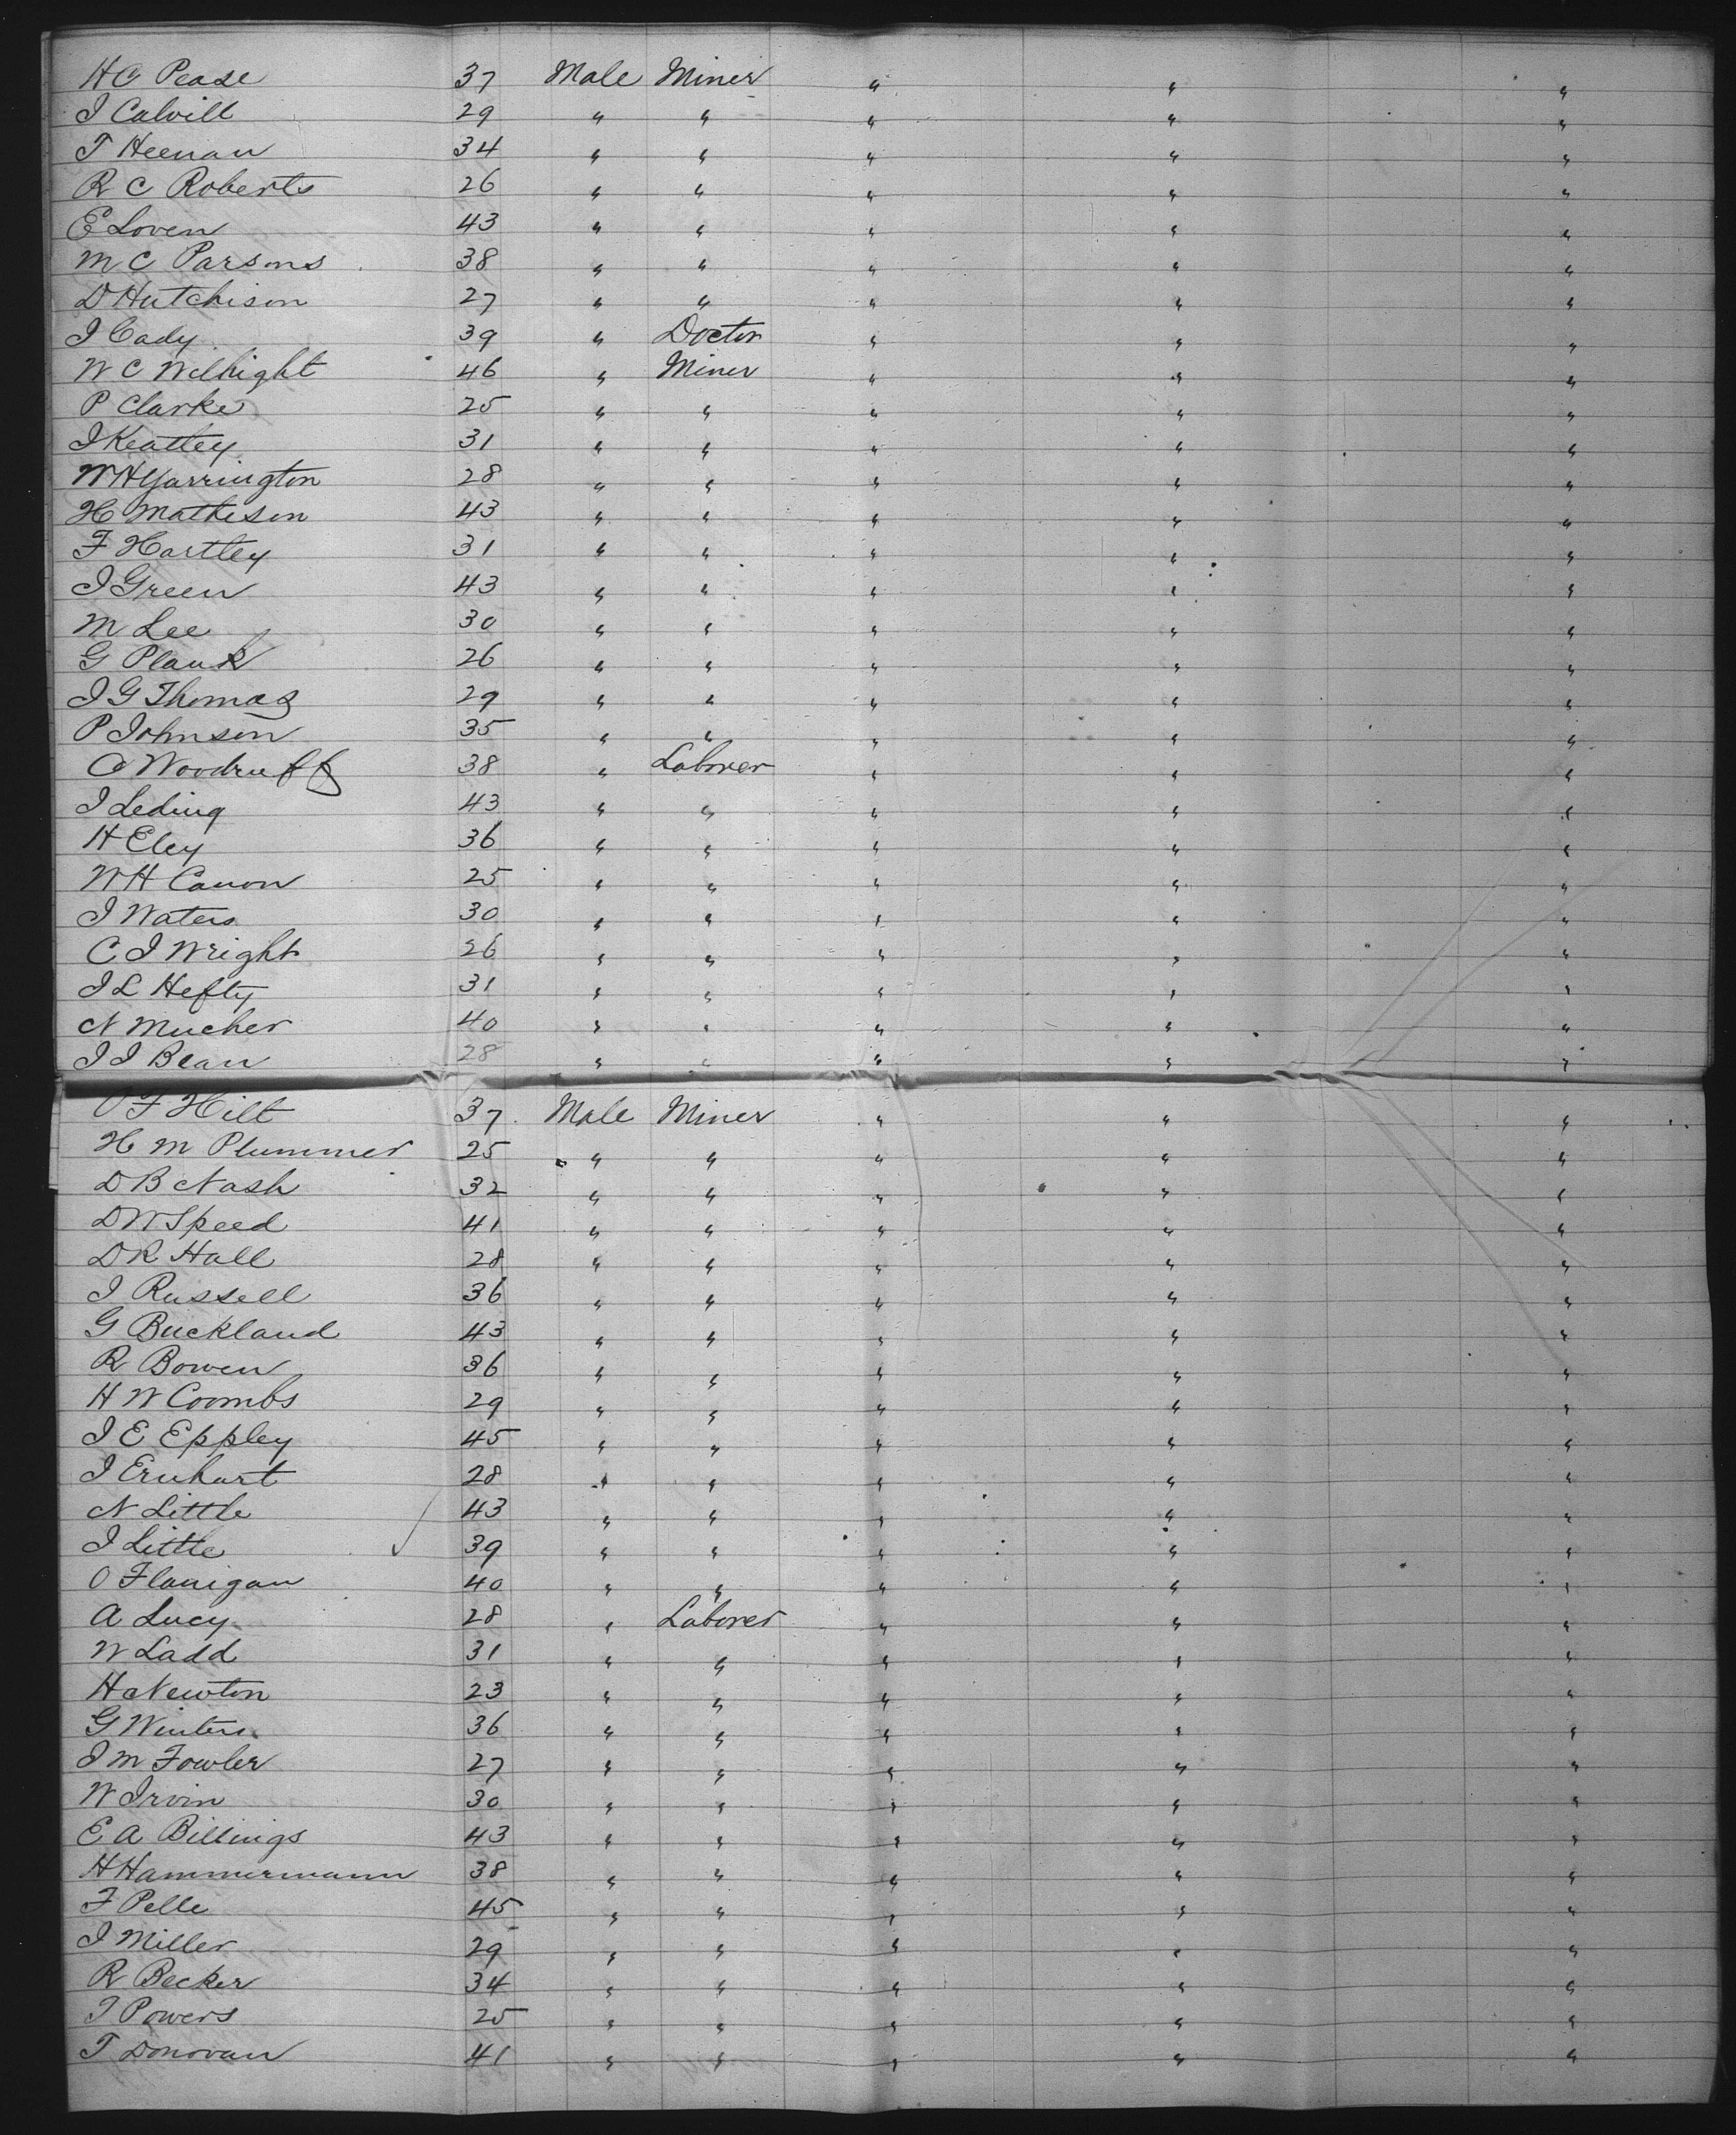 H C Pease 37 Male Miner " " "
J Calvill 29 " " " " "
T Heenan 34 " " " " "
R C Roberts 26 " " " " "
E Loven 43 " " " " "
M C Parsons 38 " " " " "
D Hutchison 27 " " " " "
J Cady 39 " Doctor " " "
W C Welhight 46 " Miner " " "
P Clarke 25 " " " " "
J Keattey 31 " " " " "
W H Yarrington 28 " " " " "
H Matheson 43 " " " " "
F Hartley 31 " " " " "
J Green 43 " " " " "
M Lee 30 " " " " "
G Plank 26 " " " " "
J G Thomas 29 " " " " "
P Johnson 35 " " " " "
C Woodruff 38 " Laborer " " "
J Leding 43 " " " " "
H Eley 36 " " " " "
W H Canon 25 " " " " "
J Waters 30 " " " " "
C J Wright 26 " " " " "
J L Hefty 31 " " " " "
N Mucher 40 " " " " "
J J Bean 28 " " " " "
O F Hilt 37 Male Miner " " "
H M Plummer 25 " " " " "
D B Nash 32 " " " " "
D W Speed 41 " " " " "
D R Hall 28 " " " " "
J Russell 36 " " " " "
G Buckland 43 " " " " "
R Bowen 36 " " " " "
H W Coombs 29 " " " " "
J E Eppley 45 " " " " "
J Eruhart 28 " " " " "
N Little 43 " " " " "
J Little 39 " " " " "
O Flanigan 40 " " " " "
A Lucy 28 " Laborer " " "
W Ladd 31 " " " " "
H Newton 23 " " " " "
G Winters 36 " " " " "
J M Fowler 27 " " " " "
W Irvin 30 " " " " "
E A Billings 43 " " " " "
H Hammermann 38 " " " " "
F Pelle 45 " " " " "
J Miller 29 " " " " "
R Becker 34 " " " " "
J Powers 25 " " " " "
T Donovan 41 " " " " "